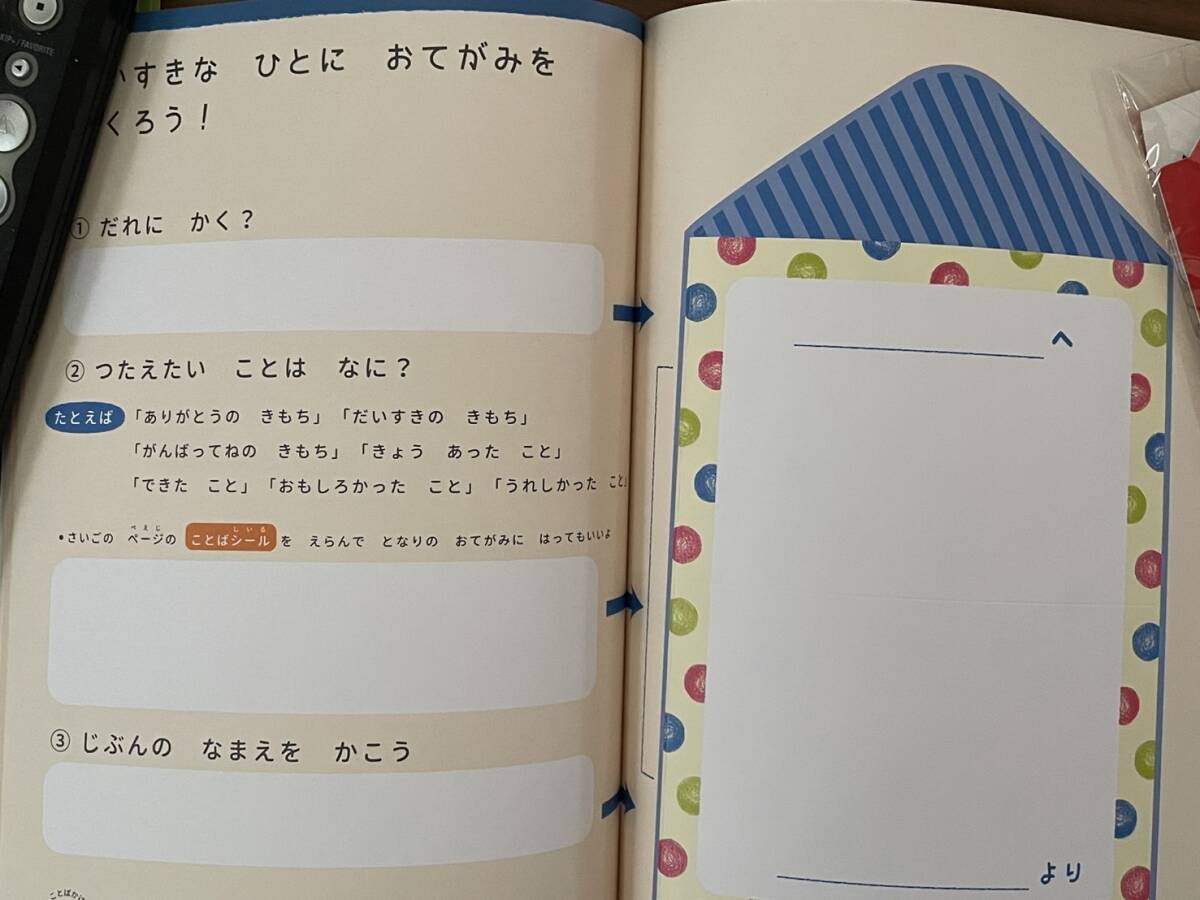 いすきな　ひとに　おてがみを
くろう！
① だれに　かく？
② つたえたい　ことは　なに？
たとえば 「ありがとうの　きもち」「だいすきの　きもち」
「がんばってねの　きもち」「きょう　あった　こと」
「できた　こと」「おもしろかった　こと」「うれしかった　こと」
ぺえじ　しいる
•さいごの　ページの　ことばシールを　えらんで　となりの　おてがみに　はってもいいよ
③ じぶんの　なまえを　かこう
へ
より
/FAVORITE